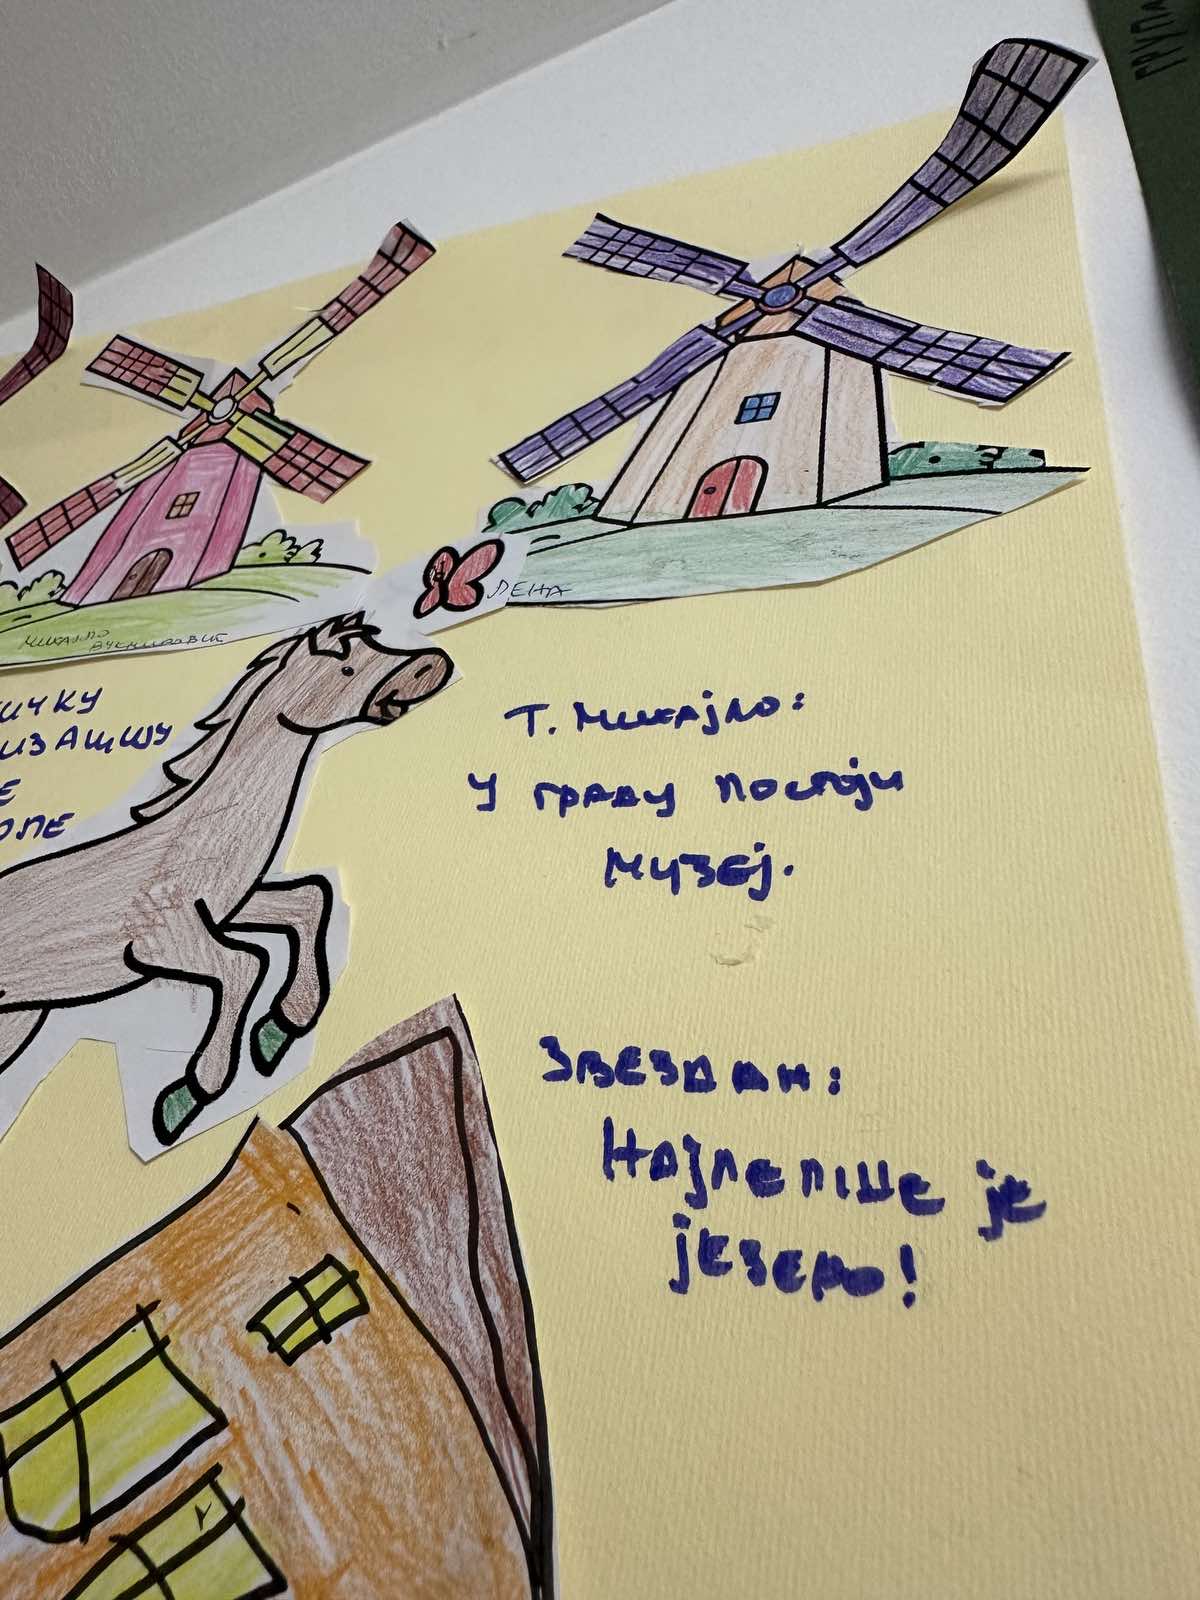 ГРУПА
ЛЕНА
МИХАЈЛО
ВУКМИРОВИЋ
ИЧКУ
ИЗАЦИЈУ
Е
ОЛЕ
Т. МИХАЈЛО:
У ГРАДУ ПОСТОЈИ
МУЗЕЈ.
ЗВЕЗДАН:
НАЈЛЕПШЕ ЈЕ
ЈЕЗЕРО!